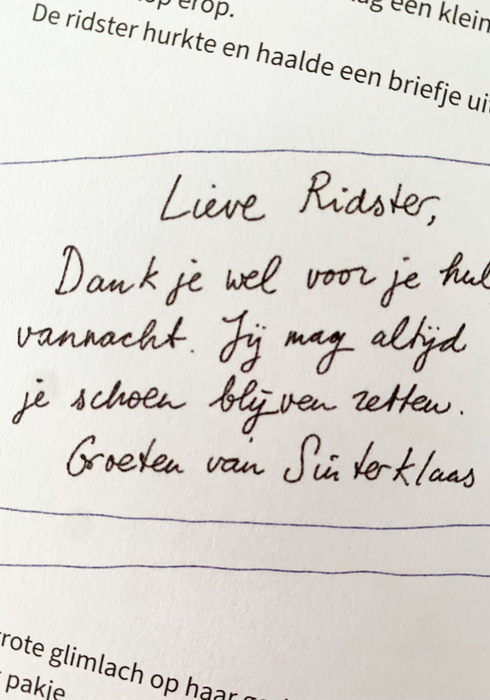 op erop.
een klein
De ridster hurkte en haalde een briefje uit
Lieve Ridster,
Dank je wel voor je hul
vannacht. Jij mag altijd
je schoen blijven zetten.
Groeten van Sinterklaas
rote glimlach op haar
pakje